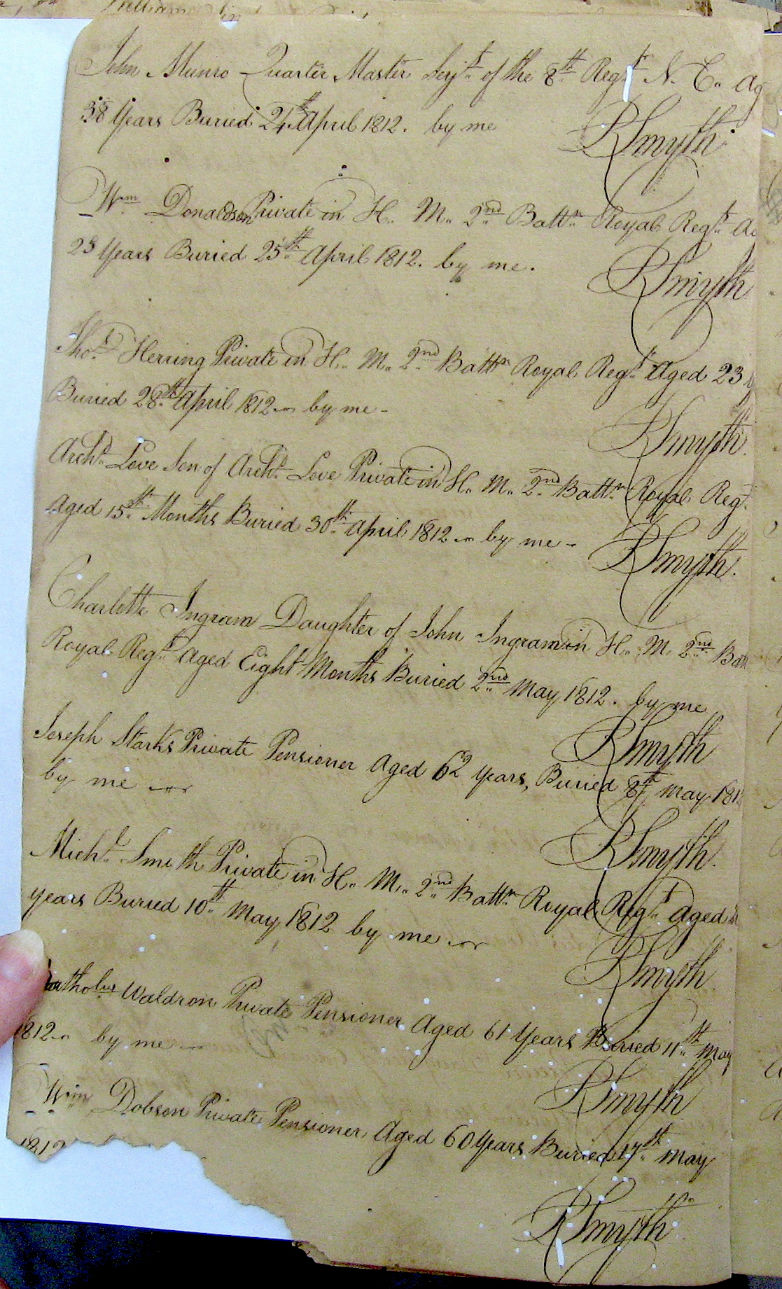 John Munro Quarter Master Serjt. of the 8th Regt. N. C. Ag
38 Years Buried 24th April 1812. by me
RSmyth
Wm Donaldson Private in H. M. 2nd Battn Royal Regt. A
25th April 1812. by me.
RSmyth
Thos. Herring Private in H. M. 2nd Battn Royal Regt. Aged 23 y
Buried 28th April 1812 by me
RSmyth
Archd. Love Son of Archd. Love Private in H. M. 2nd Battn Royal Regt.
Aged 15th Months Buried 30th April 1812 by me
RSmyth.
Charlotte Ingram Daughter of John Ingram in H. M. 2nd Batt
Royal Regt. Aged Eight Months Buried 2nd May 1812. by me
RSmyth
Joseph Starks Private Pensioner Aged 62 Years, Buried 8th May 181
by me
RSmyth.
Michl. Smith Private in H. M. 2nd Battn Royal Regt. Aged
years Buried 10th May 1812 by me
RSmyth.
Waldron Private Pensioner Aged 61 Years Buried 11th May
1812 by me
RSmyth
Wm Dobson Private Pensioner Aged 60 Years Buried 17th May
1812
RSmyth